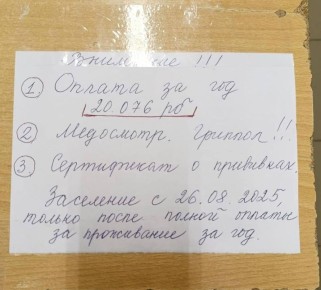 Внимание !!!
1. Оплата за год
20.076 рб
2. Медосмотр. Гриппол!!.
3. Сертификат о прививках.
Заселение с 26.08.2025,
только после полной оплаты
за проживание за год.